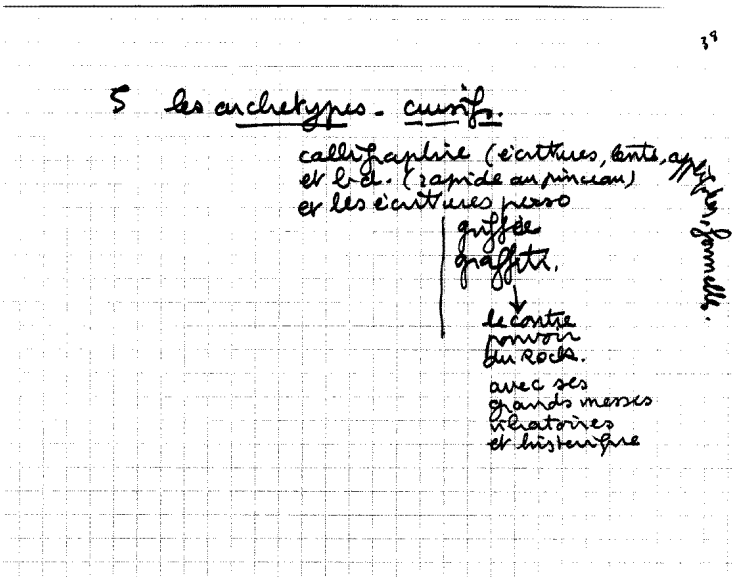 39
5 les archetypes - cursifs.
calligraphie (écritures, lente, appliquée, formelle.
et b.d. (rapide au pinceau)
et les écritures perso
griffée
graffiti.
le contre
pouvoir
du Rock.
avec ses
grands messes
vibratoires
et histerique